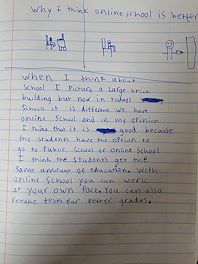 Why I think online school is better
When I think about
School I Picture a large brick
building but now in todays
School it is different we have
online School and in my opinion
I think that it is good because
the students have the option to
go to Public School or online School
I think the students get the
Same amount of education with
online School you can work
at your own Pace. You can also
retake tests for better grades.